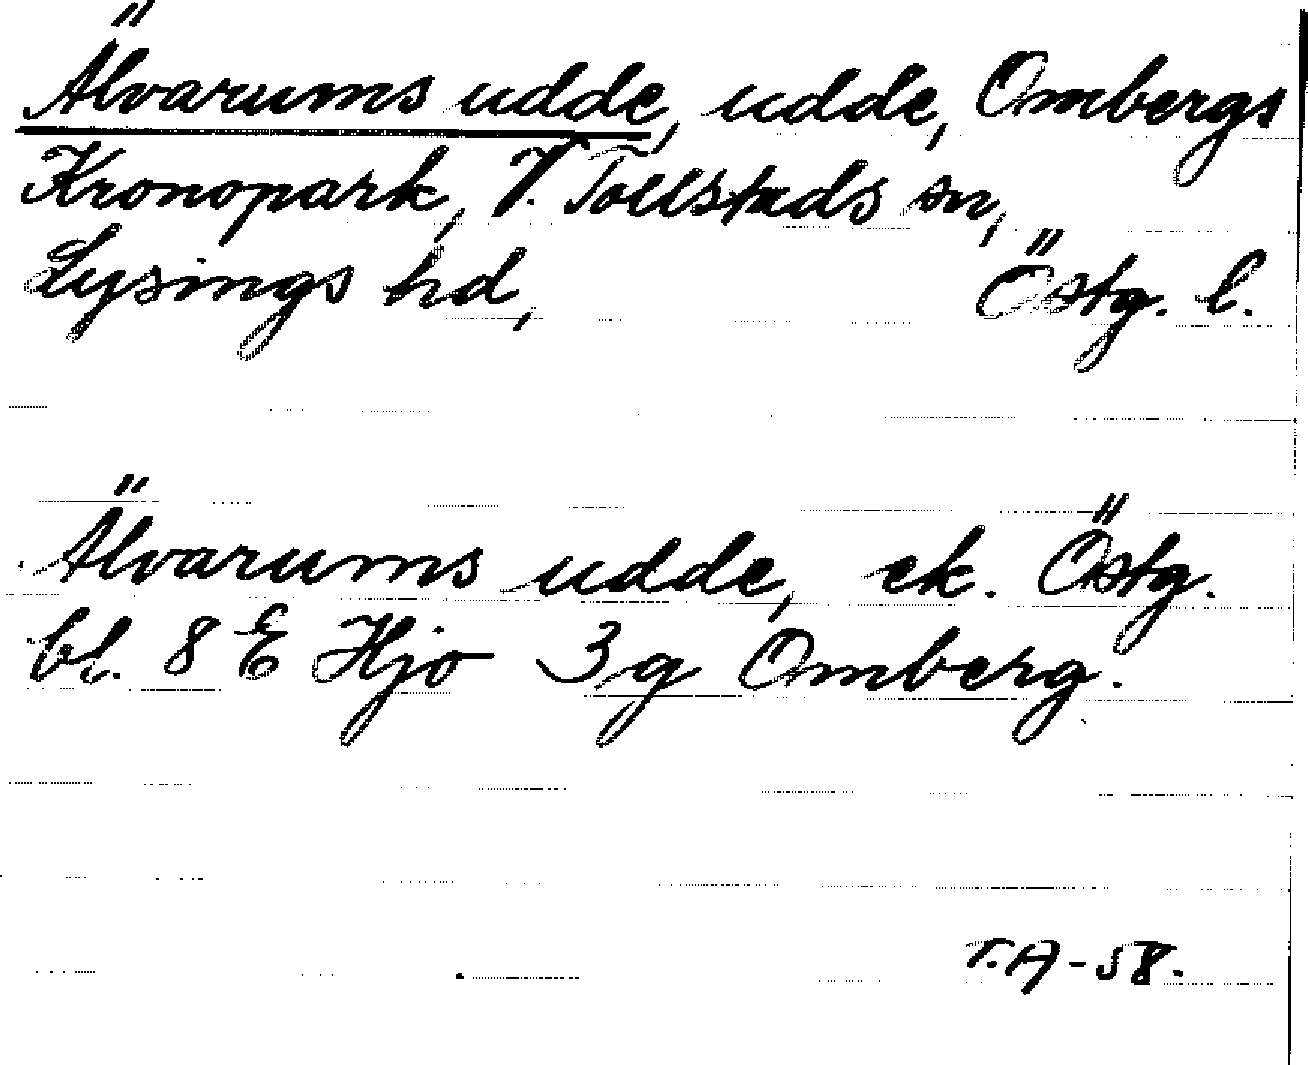 Älvarums udde, udde, Ombergs
Kronopark, V. Tollstads sn,
Lysings hd, Östg. l.
Älvarums udde, ek. Östg.
bl. 8 E Hjo 3 g Omberg.
T.A-58.